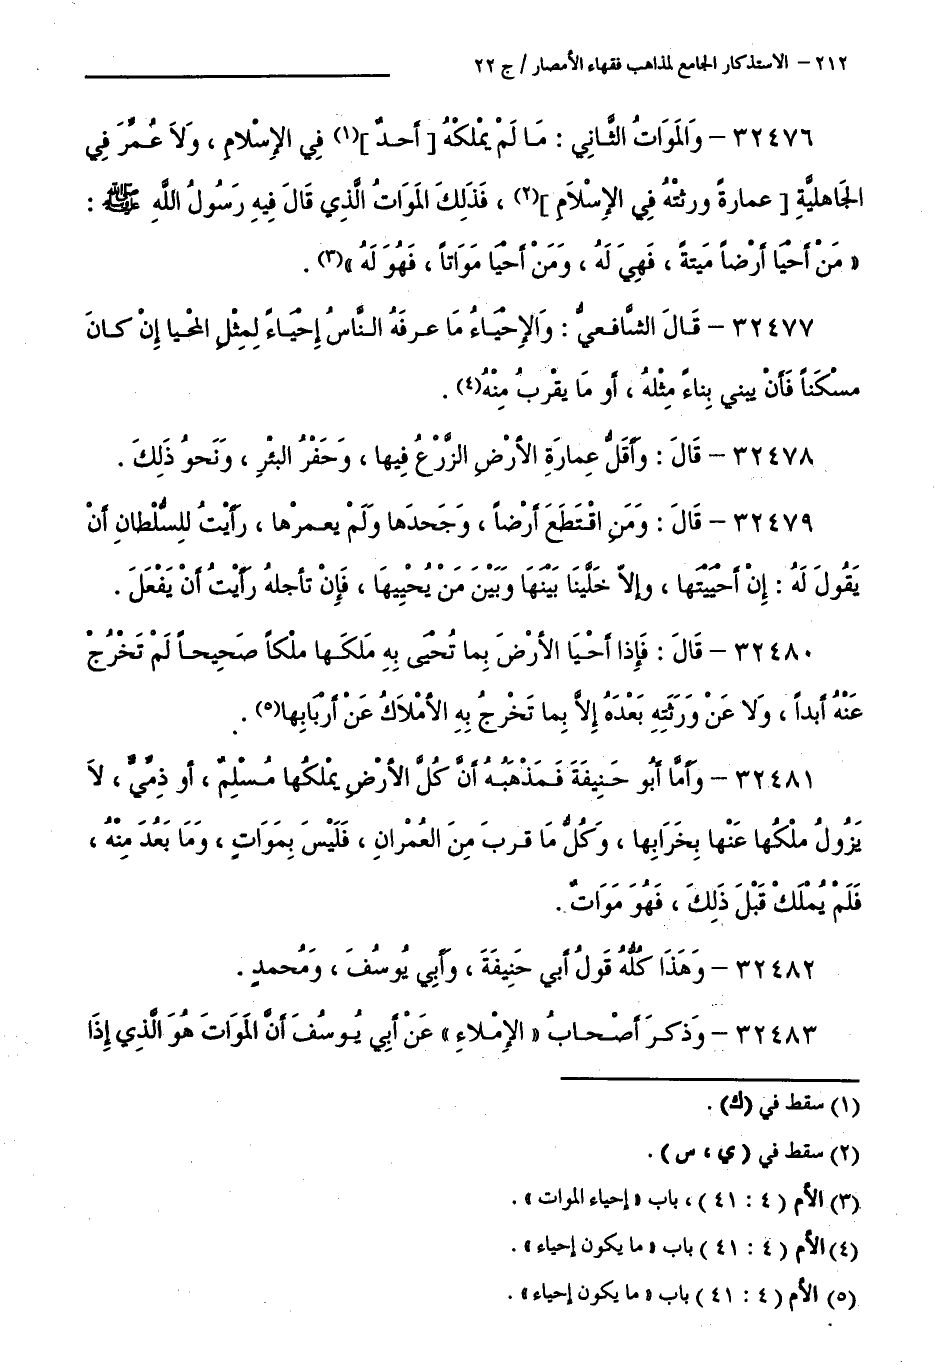 ٢١٢ – الاستذكار الجامع لمذاهب فقهاء الأمصار / ج ٢٢
٣٢٤٧٦ – وَالمَوَاتُ الثَّانِي : مَا لَمْ يَمْلكْهُ [ أحدٌ ](١) فِي الإِسْلامِ ، وَلاَ عُمِّرَ فِي
الجَاهليَّةِ [ عمارةً ورثتْهُ فِي الإِسْلاَمِ ](٢) ، فَذَلِكَ المَوَاتُ الَّذِي قَالَ فِيهِ رَسُولُ اللَّهِ ﷺ :
« مَنْ أحْيَا أرْضاً مَيتةً ، فَهِيَ لَهُ ، وَمَنْ أحْيَا مَوَاتاً ، فَهُوَ لَهُ »(٣) .
٣٢٤٧٧ – قَالَ الشَّافعيُّ : وَالإِحْيَاءُ مَا عرفَهُ النَّاسُ إِحْيَاءً لِمثْلِ المحْيا إِنْ كانَ
مسْكَناً فَأنْ يبني بِناءً مثْلهُ ، أو مَا يقْربُ مِنْهُ(٤) .
٣٢٤٧٨ – قَالَ : وَأقَلُّ عِمارَةِ الأرْضِ الزَّرْعُ فِيها ، وَحَفْرُ البئْرِ ، وَنَحوُ ذَلِكَ .
٣٢٤٧٩ – قَالَ : وَمَنِ اقْتطَعَ أرْضاً ، وَجَحدَها وَلَمْ يعمرْها ، رَأيْتُ للسُّلْطانِ أنْ
يَقُولَ لَهُ : إِنْ أحْيَيْتَها ، وإلاّ خَلَّينَا بَيْنَهَا وَبَيْنَ مَنْ يُحْيِيهَا ، فَإِنْ تأجلهُ رَأيْتُ أنْ يَفْعَلَ .
٣٢٤٨٠ – قَالَ : فَإِذا أحْيَا الأرْضَ بِما تُحْيَى بِهِ مَلكَها ملْكاً صَحِيحاً لَمْ تَخْرُجْ
عَنْهُ أبداً ، وَلا عَنْ وَرَثَتِهِ بَعْدَهُ إِلاَّ بِما تَخْرجُ بِهِ الأمْلاكُ عَنْ أرْبَابِها(٥) .
٣٢٤٨١ – وَأمَّا أبُو حَنِيفَةَ فَمَذْهَبُهُ أنَّ كُلَّ الأرْضِ يمْلكُها مُسْلِمٌ ، أو ذِمِّيٌّ ، لاَ
يَزُولُ ملْكُها عَنْها بِخَرَابِها ، وَكُلُّ مَا قربَ مِنَ العُمْرانِ ، فَلَيْسَ بِمَوَاتٍ ، وَمَا بَعُدَ مِنْهُ ،
فَلَمْ يُمْلَكْ قَبْلَ ذَلِكَ ، فَهُوَ مَوَاتٌ .
٣٢٤٨٢ – وَهَذَا كُلُّهُ قَولُ أبي حَنِيفَةَ ، وَأبِي يُوسُفَ ، وَمُحمدٍ .
٣٢٤٨٣ – وَذكرَ أصْحابُ « الإِمْلاءِ » عَنْ أبِي يُوسُفَ أنَّ المَوَاتَ هُوَ الَّذِي إِذَا
(١) سقط في (ك) .
(٢) سقط في ( ي ، س ) .
(٣) الأم ( ٤ : ٤١ ) ، باب « إحياء الموات » .
(٤) الأم ( ٤ : ٤١ ) باب « ما يكون إحياء » .
(٥) الأم ( ٤ : ٤١ ) باب « ما يكون إحياء » .